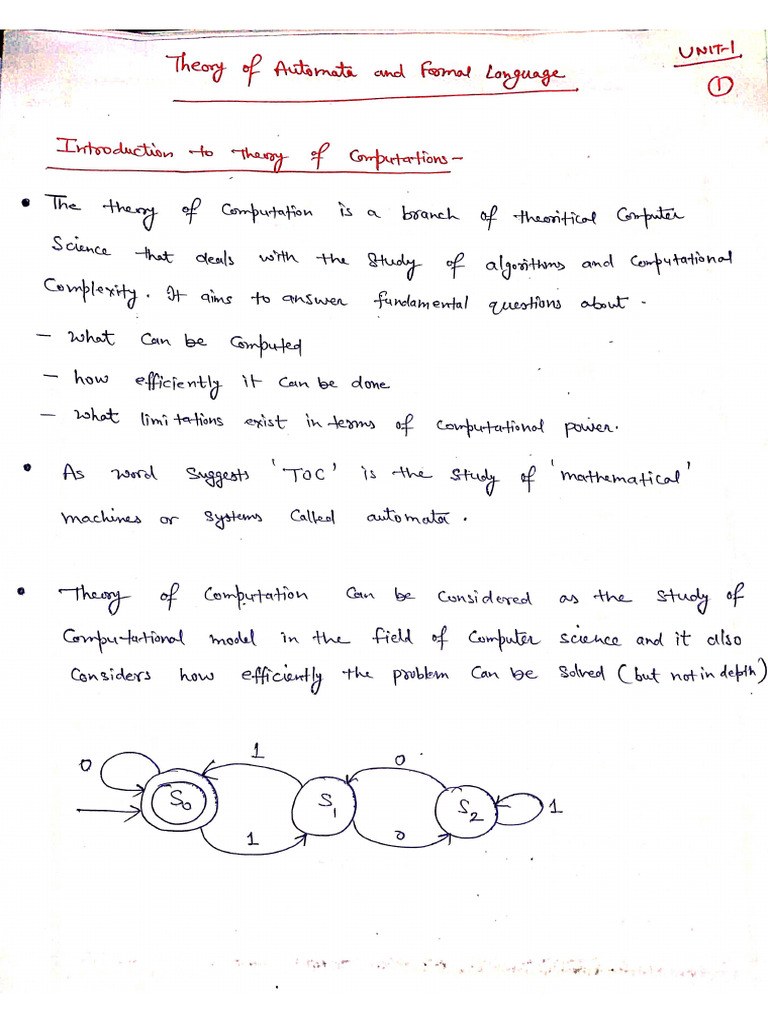 Theory of Automata and Formal Language
UNIT-1
1
Introduction to Theory of Computations-
• The theory of Computation is a branch of theoritical Computer
Science that deals with the study of algorithms and computational
Complexity. It aims to answer fundamental questions about.
- what can be computed
- how efficiently it can be done
- what limitations exist in terms of computational power.
• As word suggests 'TOC' is the study of 'mathematical'
machines or systems called automata.
• Theory of Computation can be considered as the study of
Computational model in the field of computer science and it also
Considers how efficiently the problem can be solved (but not in depth)
0 1 0
S0 S1 S2 1
1 0